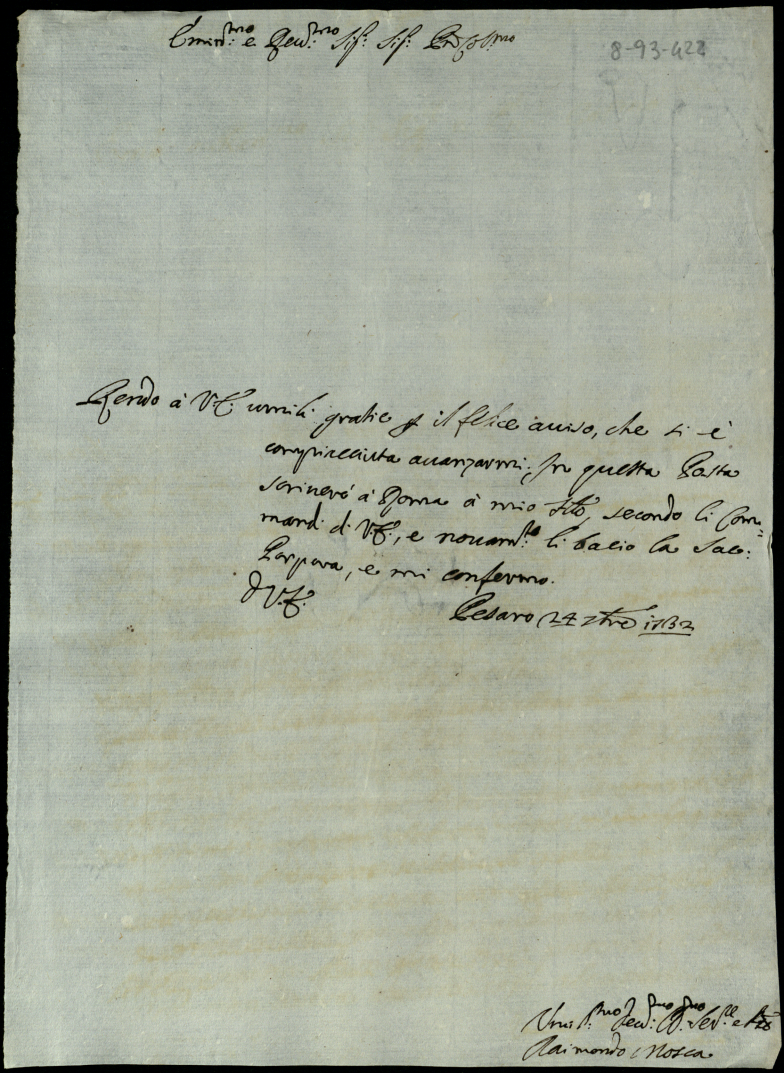 Emin.mo e Reu.mo Sig.r Sig.r P.ron Col.mo
8-93-422
Rendo à V.E. umili gratie p il felice auuiso, che si è
compiacciuta auanzarmi; In questa Posta
scriuerò à Roma à mio Filo, secondo li Com=
mandi di V.E., e nouam.te li bacio la Sac:
Porpora, e mi confermo.
D V.E.
Pesaro 24 7bre 1732
Vmi.mo Deu.mo Ob.mo Ser.re e
Raimondo Mosca